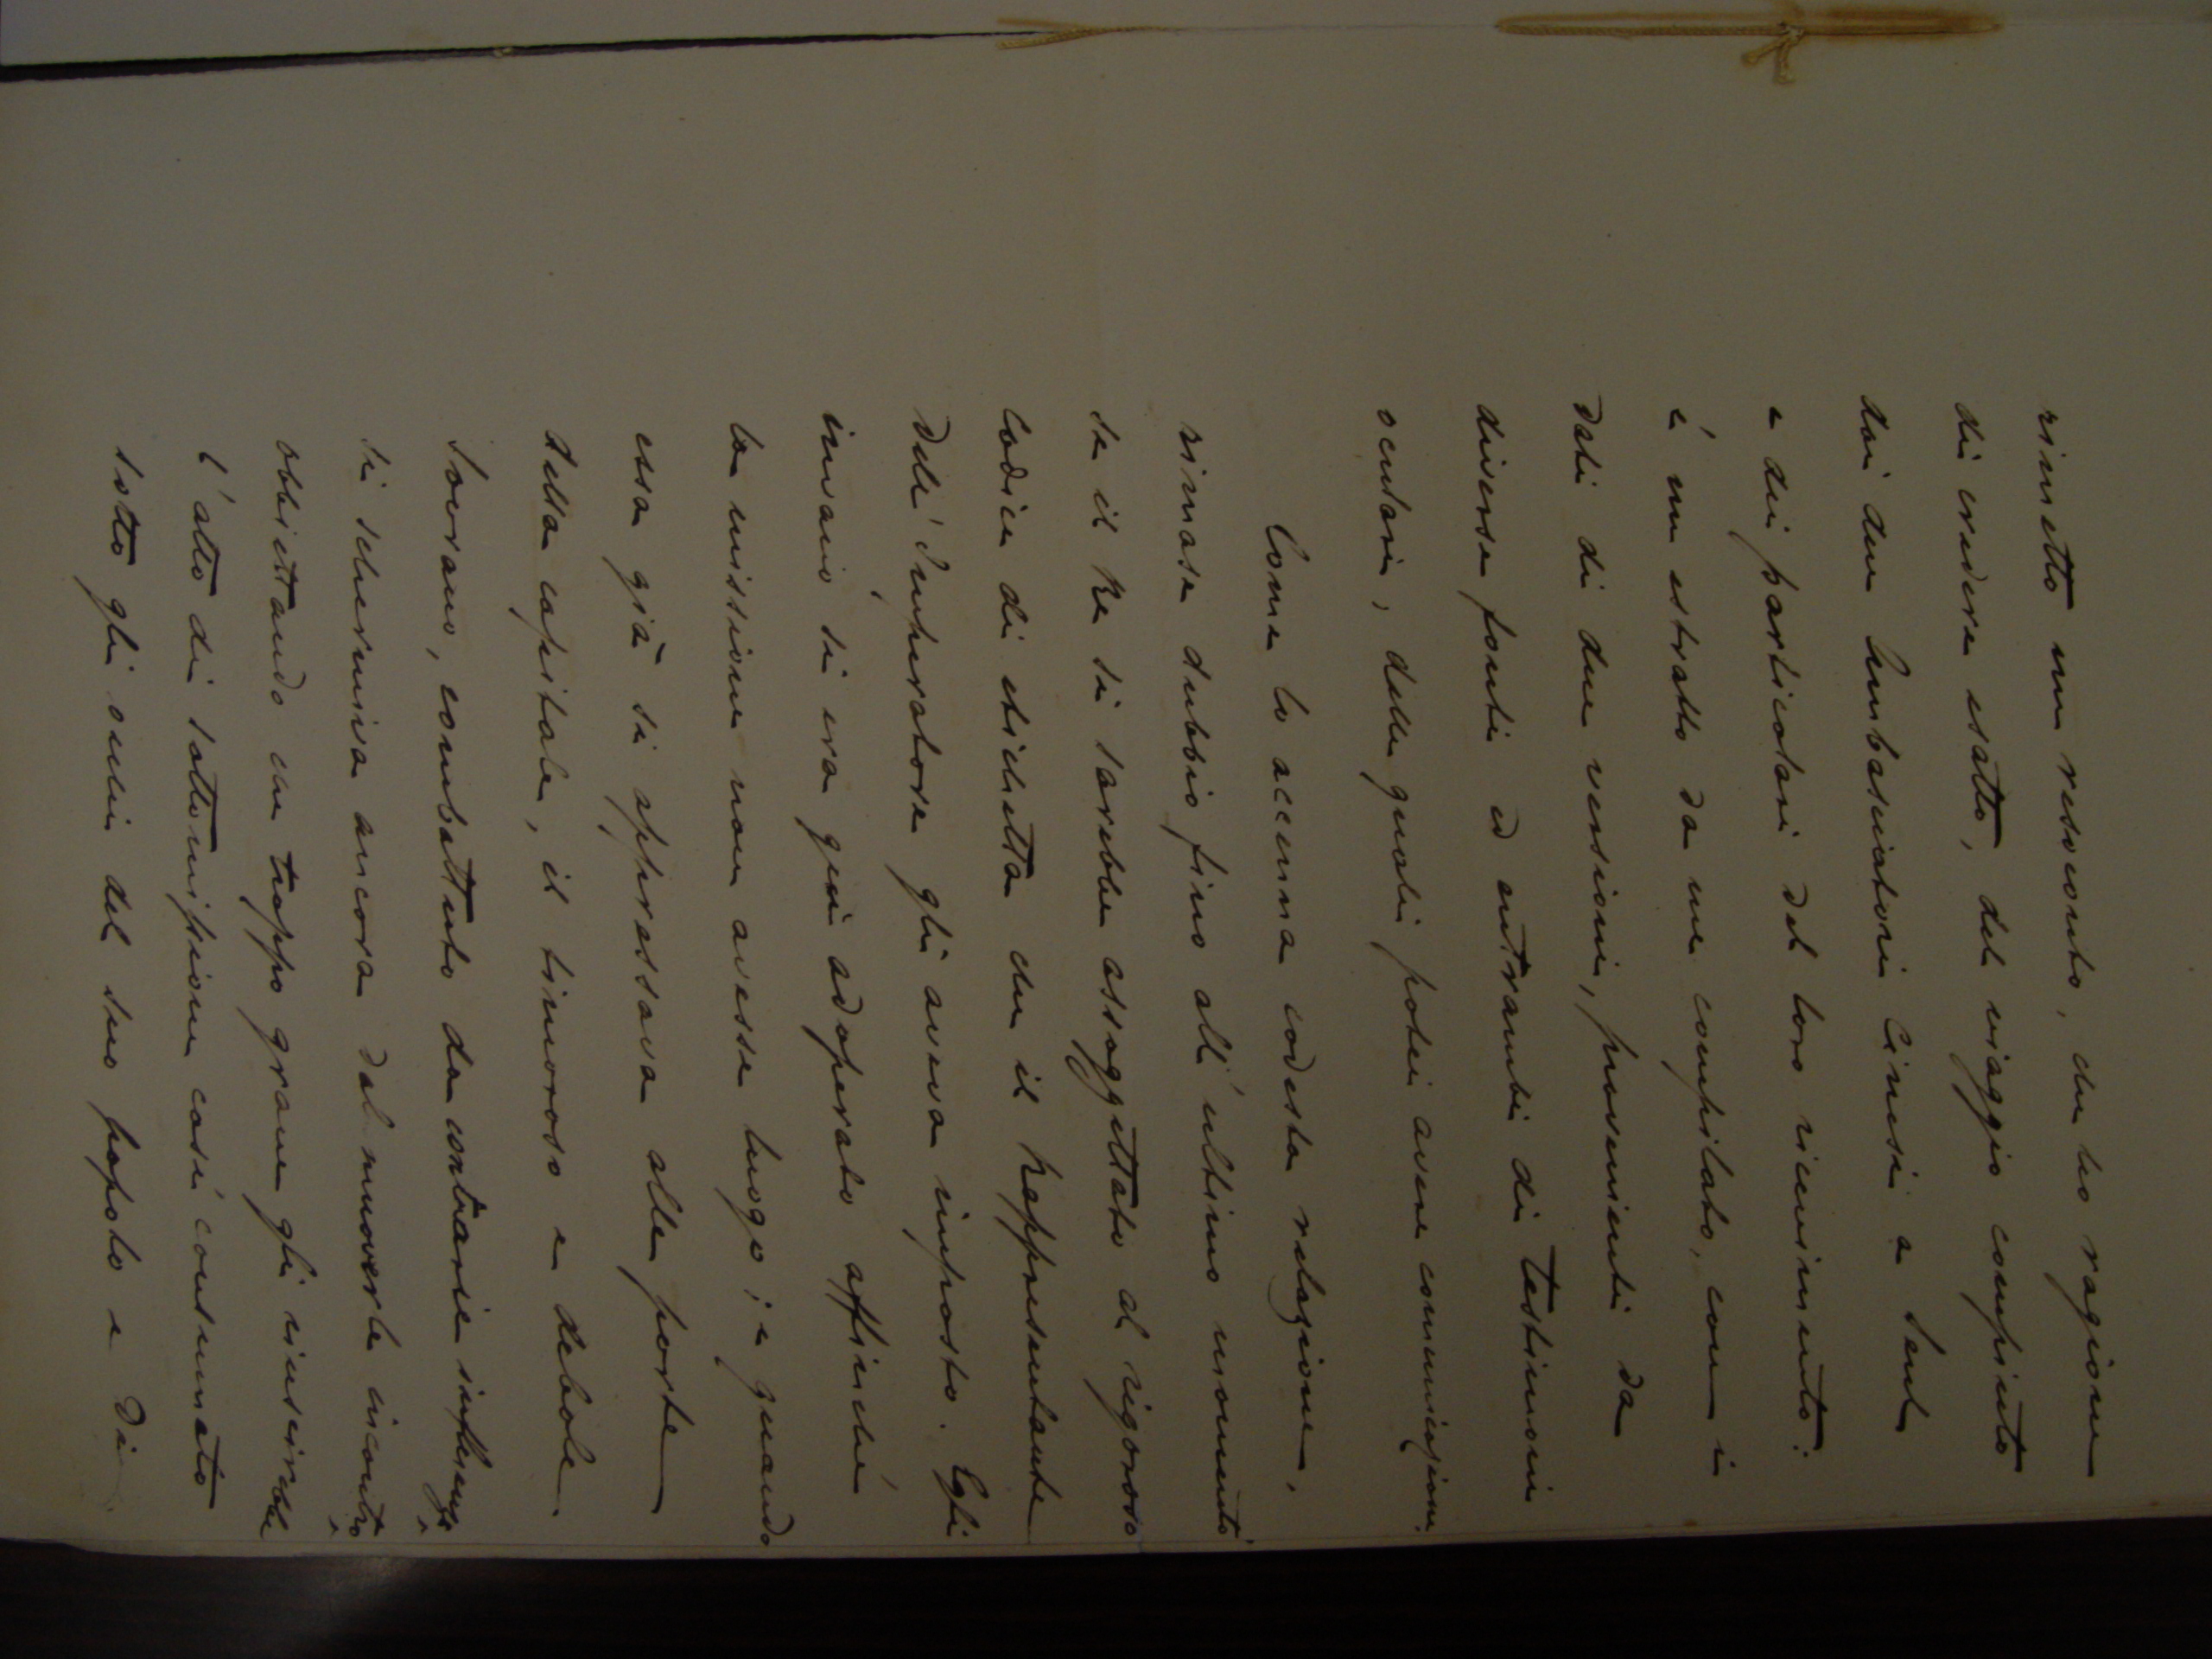 rimetto un resoconto, che ho ragione
di credere esatto, del viaggio compiuto
dai due Ambasciatori Cinesi a Seul
e dei particolari del loro ricevimento:
è un estratto da me compilato, con i
dati di due versioni, provenienti da
diverse fonti ed entrambi di testimoni
oculari, delle quali potei avere comunicazione.
Come lo accenna codesta relazione,
rimase dubbio fino all'ultimo momento
se il Re si sarebbe assoggettato al rigoroso
Codice di etichetta che il Rappresentante
dell'Imperatore gli aveva imposto. Egli
invano si era già adoperato affinché
la missione non avesse luogo; e quando
essa già si appressava alle porte
della capitale, il timoroso e debole
Sovrano, combattuto da contrarie influenze
si schermiva ancora dal muoverle incontro
obbiettando che troppo grave gli riuscirebbe
l'atto di sottomissione così consumato
sotto gli occhi del suo popolo e di